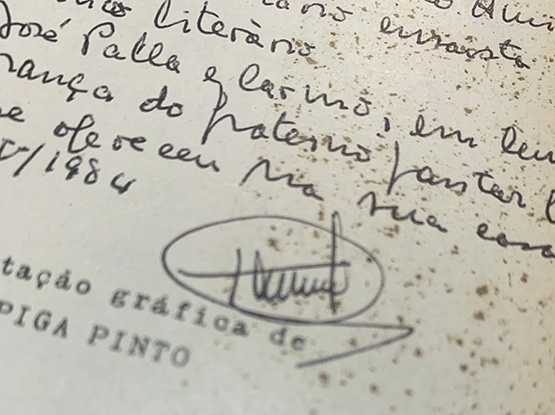 literário ensaísta
José Palla e Carmo, em lem
rança do fraterno jantar
ofereceu na sua casa
/1984
tação gráfica de
PIGA PINTO